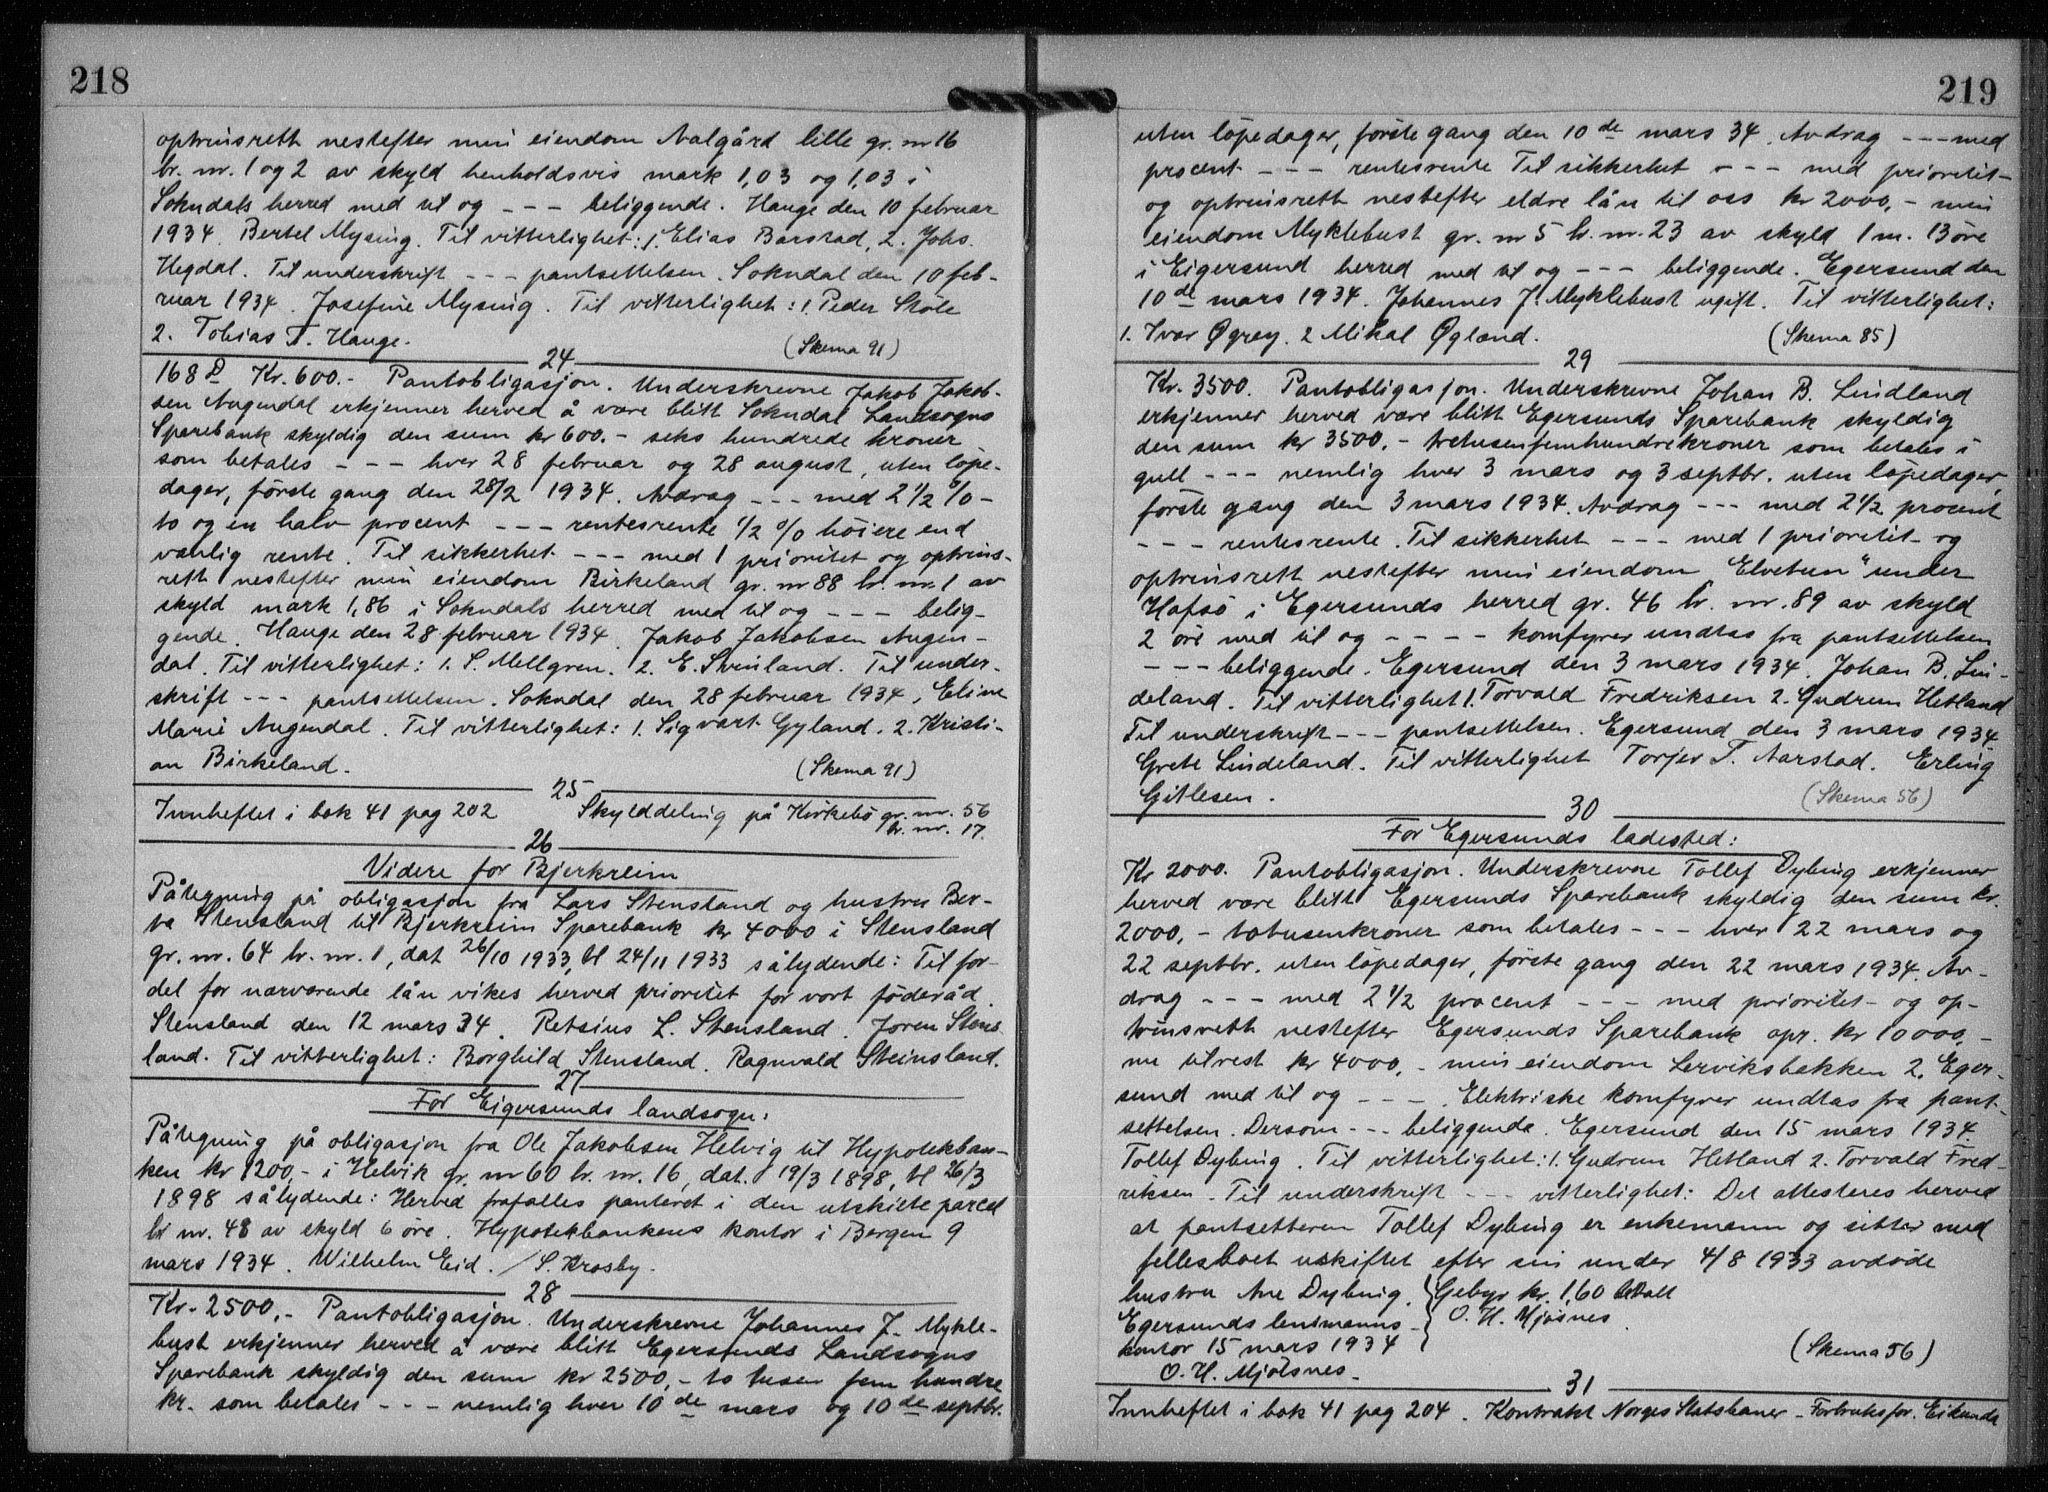 218
optrinsrett nestefter min eiendom Aalgård lille gr. nr 16
br. nr. 1 og 2 av skyld henholdsvis mark 1,03 og 1,03 i
Sokndals herred med til og --- beliggende. Hauge den 10 februar
1934. Bertel Mysing. Til vitterlighet: 1. Elias Barstad, 2. Johs.
Hegdal. Til underskrift --- pantsettelsen. Sokndal den 10 feb-
ruar 1934. Josefine Mysing. Til vitterlighet: 1. Peder Støle
2. Tobias T. Hauge. (Skema 91)
24
168 D Kr. 600.- Pantobligasjon. Underskrevne Jakob Jakob-
sen Augendal erkjenner herved å være blitt Sokndal Landsogns
Sparebank skyldig den sum kr 600.- seks hundrede kroner
som betales --- hver 28 februar og 28 august, uten løpe-
dager, første gang den 28/2 1934. Avdrag --- med 2 1/2 % -
to og en halv procent --- rentesrente 1/2 % høiere end
vanlig rente. Til sikkerhet --- med 1 prioritet og optrins-
rett nestefter min eiendom Birkeland gr. nr 88 br. nr. 1 av
skyld mark 1,86 i Sokndals herred med til og --- belig-
gende. Hauge den 28 februar 1934. Jakob Jakobsen Augen-
dal. Til vitterlighet: 1. S. Mellgren. 2. E. Svinland. Til under-
skrift --- pantsettelsen. Sokndal den 28 februar 1934, Eline
Marie Augendal. Til vitterlighet: 1. Sigvart Gyland. 2. Kristi-
an Birkeland. (Skema 91)
25
Innheftet i bok 41 pag 202 Skylddeling på Kirkebø gr. nr. 56
br. nr. 17.
26
Videre for Bjerkreim
Påtegning på obligasjon fra Lars Stensland og hustru Ber-
ta Stensland til Bjerkreim Sparebank kr 4000 i Stensland
gr. nr. 64 br. nr. 1, dat 26/10 1933, tl 24/11 1933 sålydende: Til for-
del for nærværende lån vikes herved prioritet for vort føderåd.
Stensland den 12 mars 34. Retsius L. Stensland. Joren Stens
land. Til vitterlighet: Borghild Stensland. Ragnvald Steinsland.
27
For Eigersunds landsogn:
Påtegning på obligasjon fra Ole Jakobsen Helvig til Hypotekban-
ken kr 1200,- i Helvik gr. nr 60 br. nr. 16, dat. 19/3 1898, tl 26/3
1898 sålydende: Herved frafalles panteret i den utskilte parcel
br nr. 48 av skyld 6 øre. Hypotekbankens kontor i Bergen 9
mars 1934. Wilhelm Eid. / S. Krosby.
28
Kr. 2500,- Pantobligasjon. Underskrevne Johannes J. Mykle-
bust erkjenner herved å være blitt Egersunds Landsogns
Sparebank skyldig den sum kr 2500,- to tusen fem hundre
kr. som betales --- nemlig hver 10de mars og 10de septbr.
219
uten løpedager, første gang den 10de mars 34. Avdrag --- med
procent --- rentesrente Til sikkerhet --- med prioritet-
og optrinsrett nestefter eldre lån til oss kr 2000,- min
eiendom Myklebust gr. nr 5 br. nr. 23 av skyld 1 m. 13 øre
i Eigersund herred med til og --- beliggende. Egersund den
10de mars 1934. Johannes J. Myklebust ugift. Til vitterlighet:
1. Ivar Øgrey. 2 Mikal Øgland. (Skema 85)
29
Kr. 3500. Pantobligasjon. Underskrevne Johan B. Lindland
erkjenner herved være blitt Egersunds Sparebank skyldig
den sum kr 3500,- tretusenfemhundrekroner som betales i
gull --- nemlig hver 3 mars og 3 septbr. uten løpedager,
første gang den 3 mars 1934. Avdrag --- med 2 1/2 procent
--- rentesrente. Til sikkerhet --- med 1 prioritet- og
optrinsrett nestefter min eiendom Elvetun" under
Hafsø i Egersunds herred gr. 46 br. nr. 89 av skyld
2 øre med til og ---- komfyrer undtas fra pantsettelsen
--- beliggende. Egersund den 3 mars 1934. Johan B. Lin-
deland. Til vitterlighet 1. Torvald Fredriksen 2. Gudrun Hetland
Til underskrift --- pantsettelsen. Egersund den 3 mars 1934
Grete Lindeland. Til vitterlighet Torjer T. Aarstad. Erling
Gitlesen. (Skema 56)
30
For Egersunds ladested:
Kr 2000. Pantobligasjon. Underskrevne Tollef Dybing erkjenner
herved være blitt Egersunds Sparebank skyldig den sum kr.
2000,- totusenkroner som betales --- hver 22 mars og
22 septbr. uten løpedager, første gang den 22 mars 1934. Av-
drag --- med 2 1/2 procent --- med prioritet- og op-
trinsrett nestefter Egersunds Sparebank opr. kr 10000,-
nu tilrest kr 4000,- min eiendom Lerviksbakken 2. Eger-
sund med til og ---. Elektriske komfyrer undtas fra pant-
settelsen. Dersom --- beliggende. Egersund den 15 mars 1934.
Tollef Dybing. Til vitterlighet: 1. Gudrun Hetland 2. Torvald Fred-
riksen. Til underskrift --- vitterlighet: Det attesteres herved
at pantsetteren Tollef Dybing er enkemann og sitter med
fellesboet uskiftet efter sin under 4/8 1933 avdøde
hustru Ane Dybing. Gebyr kr. 1,60 betalt
Egersunds lensmanns- O. H. Mjølsnes.
kontor 15 mars 1934 (Skema 56)
O. H. Mjølsnes.
31
Innheftet i bok 41 pag 204. Kontrakt Norges Statsbaner - Forbruksfor. Eikunda